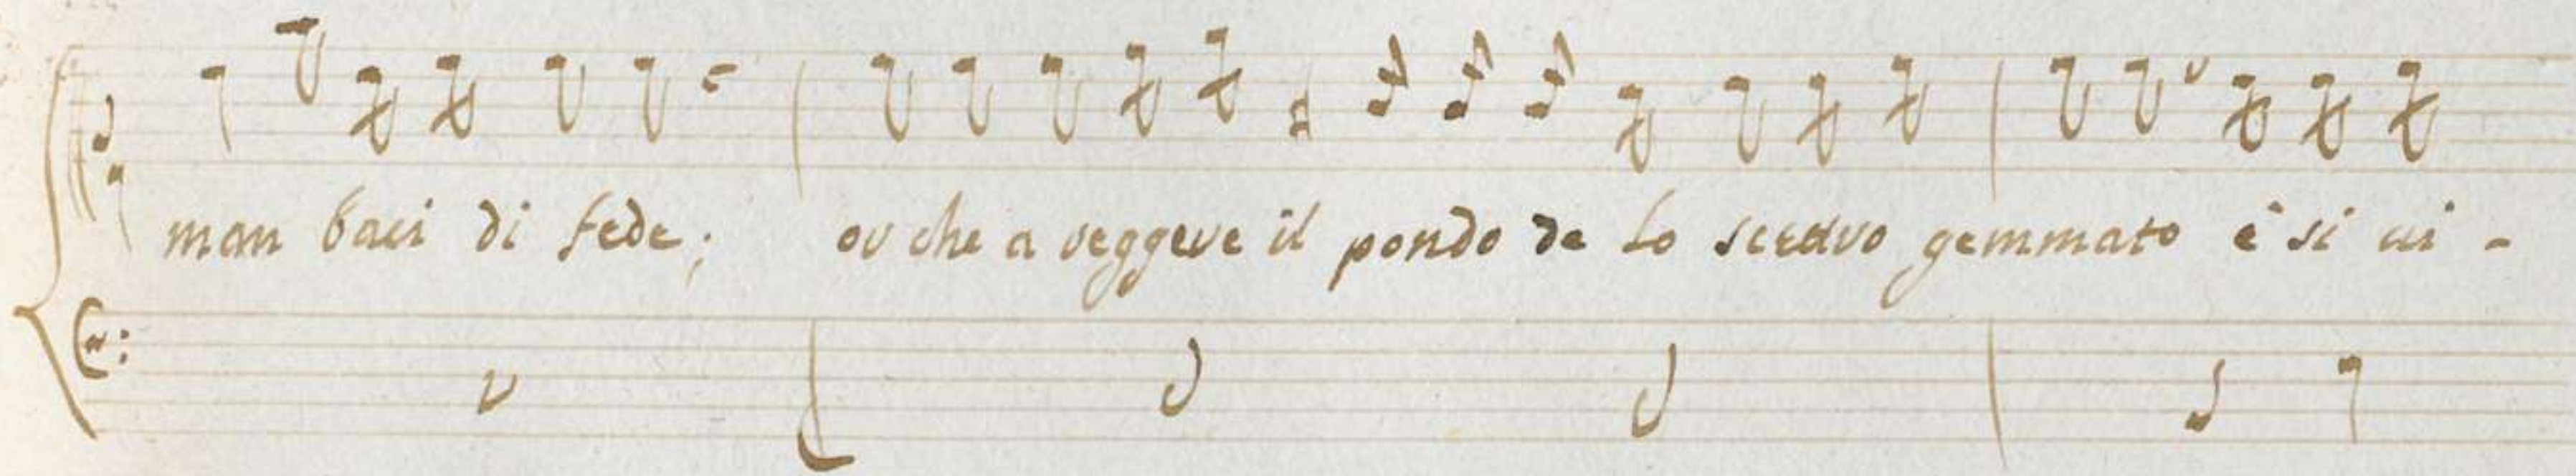 man baci di fede; or che a reggere il pondo de lo scettro gemmato è si ci -